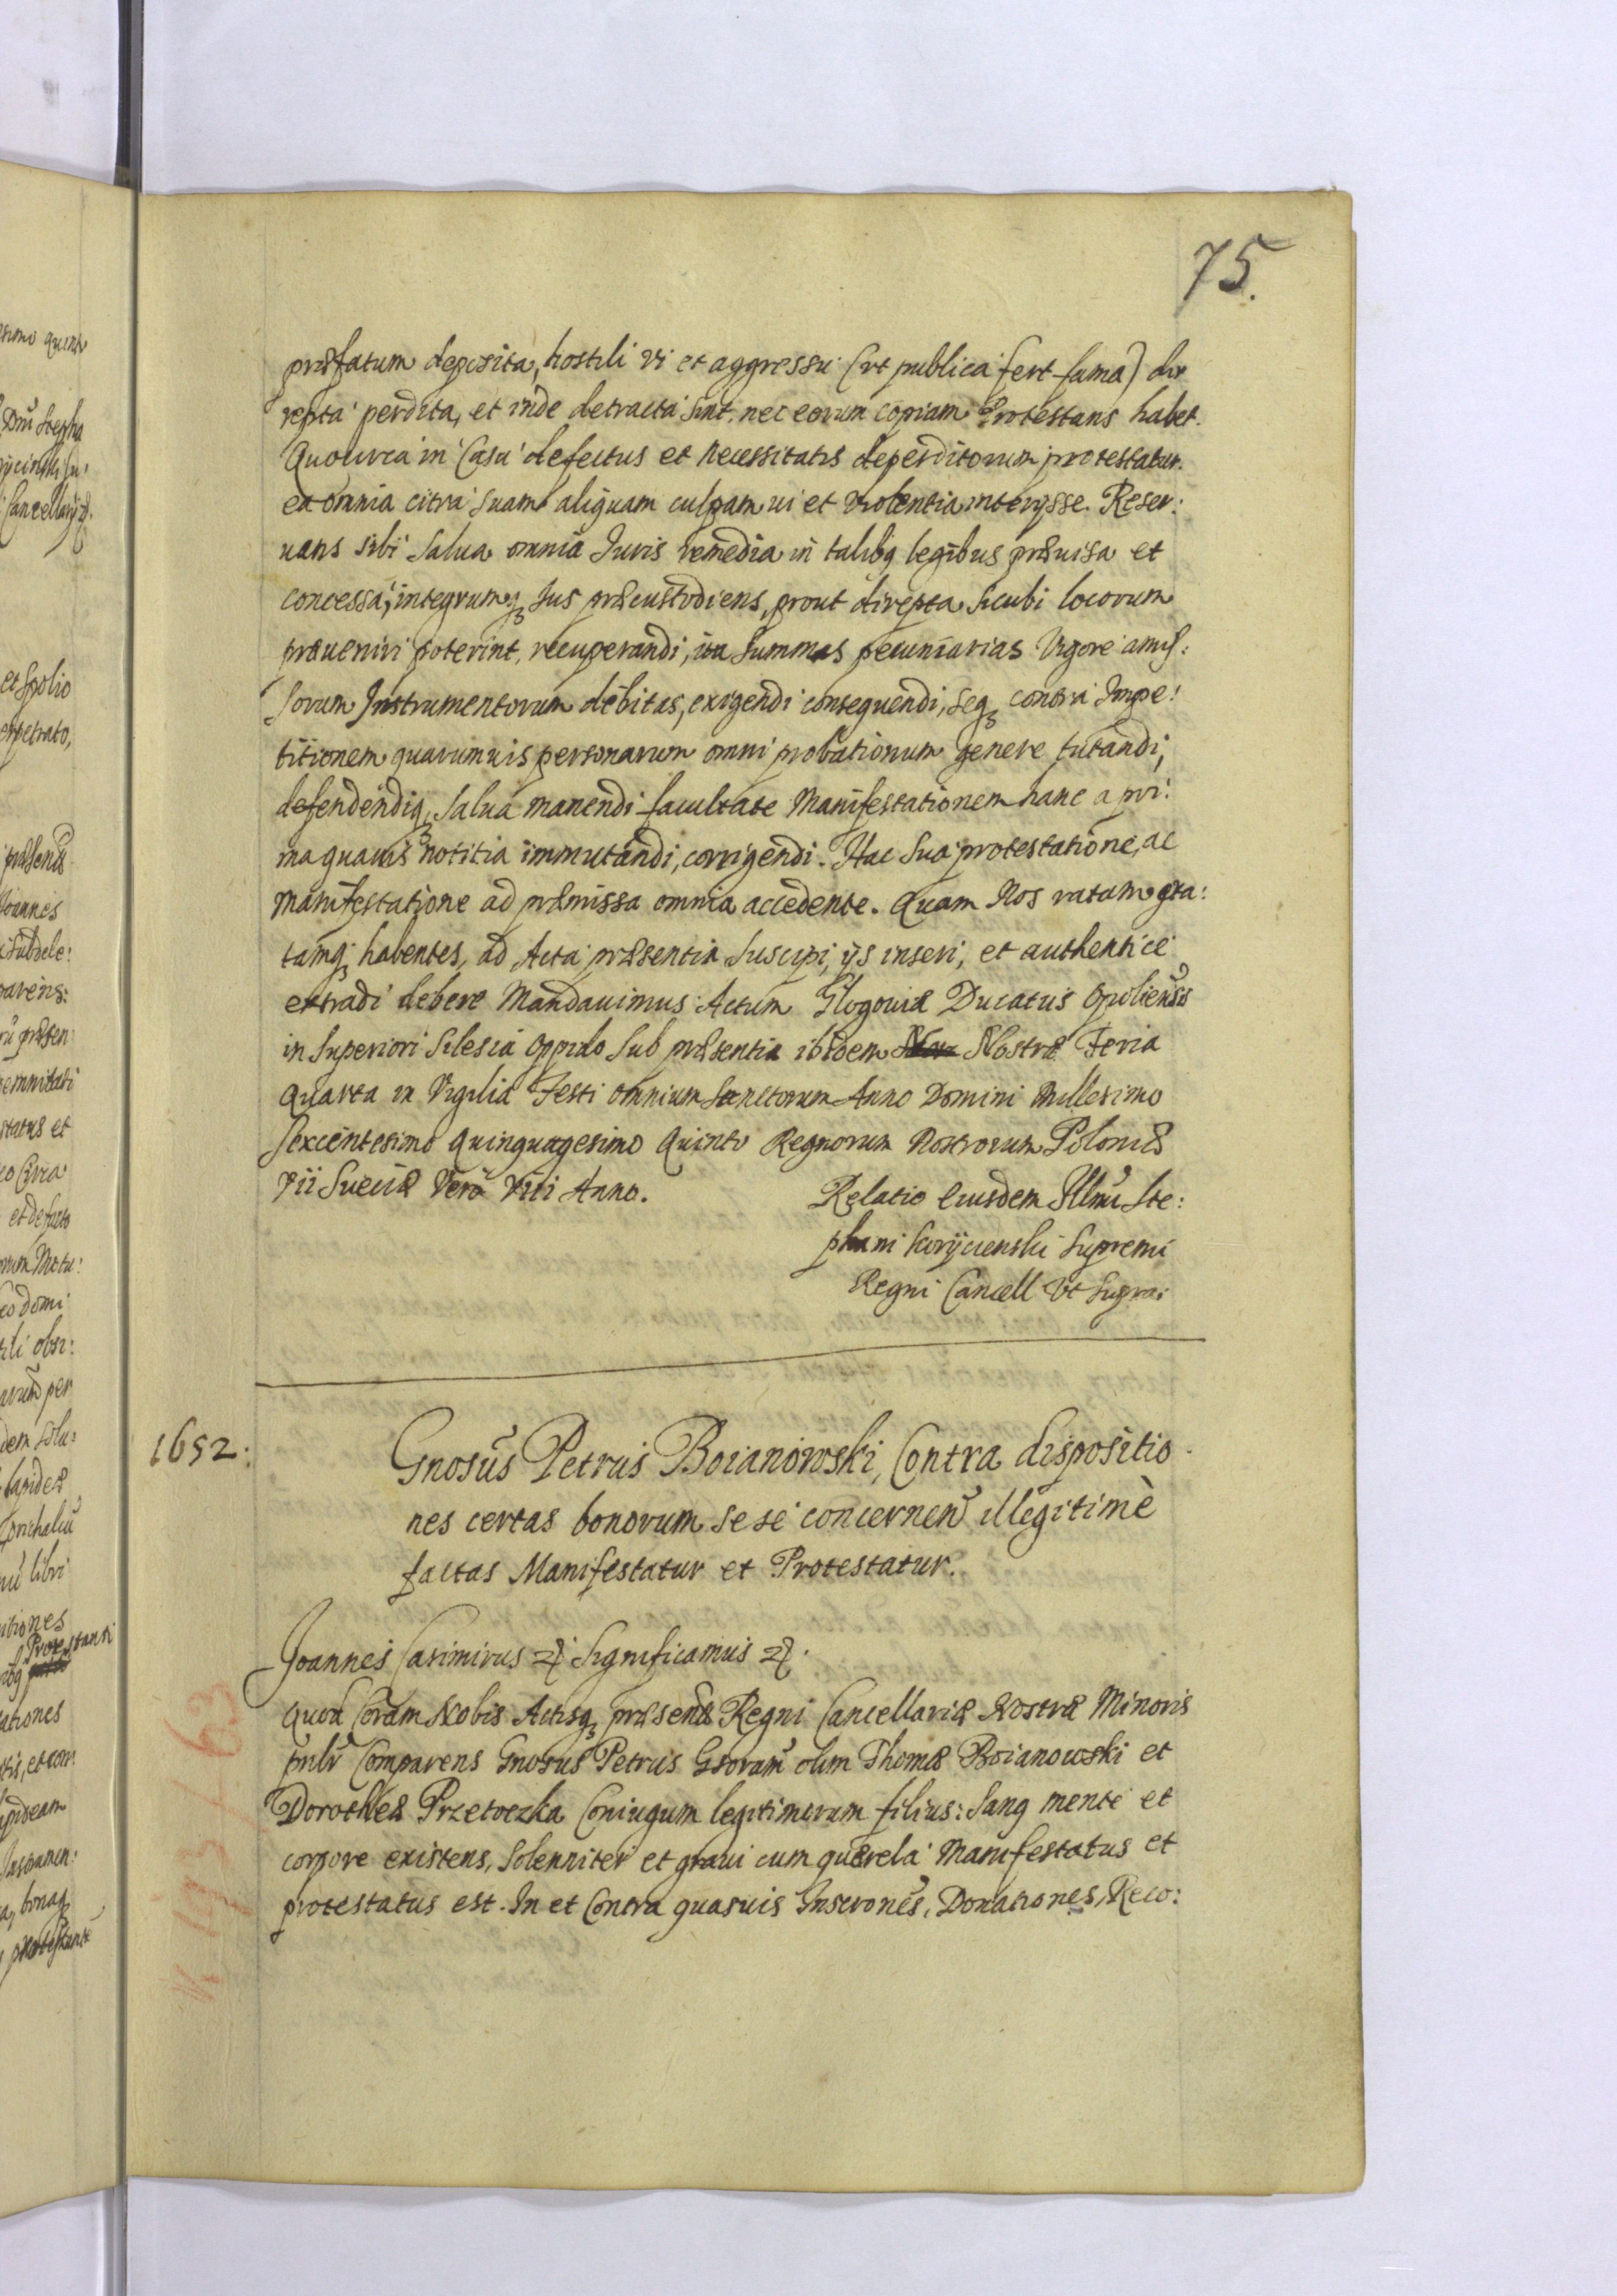 75.
præfatum deposita, hostili vi et aggressu (vt publica fert fama) dir
repta perdita, et inde detracta sint, nec eorum copiam Protestans habet.
Quocirca in Casu defectus et necessitatis deperditorum protestatur.
ea omnia citra suam aliquam culpam ui et violentia interysse. Reser:
uans sibi salua omnia Iuris remedia in talibq legibus præuisa et
concessa, integrumq Ius præcustodiens, prout direpta sicubi locorum
præueniri poterint, recuperandi, ita summas pecuniarias Vigore amis:
sorum Instrumentorum debitas, exigendi consequendi, seq contra Impe:
titionem quarumuis personarum omni probationum genere tutandi,
defendendiq, salua manendi facultate Manifestationem hanc a pri:
ma quauis notitia immutandi, corrigendi. Hac sua protestatione, ac
manifestatione ad præmissa omnia accedente. Quam Nos ratam gra:
tamq habentes, ad Acta præsentia suscipi, ijs inseri, et authentice
extradi debere Mandauimus. Actum Glogouiæ Ducatus Opoliensis
in superiori Silesia Oppido sub præsentia ibidem Nostra Feria
Quarta in Vigilia Festi omnium Sanctorum Anno Domini Millesimo
sexcentesimo Quinquagesimo Quinto Regnorum Nostrorum Poloniæ
VII Sueciæ Vero VIII Anno.
Relatio Eiusdem Illmi Ste:
phani Korycienski Supremi
Regni Cancell Vt supra.
1652:
Gnosus Petrus Boianowski, Contra dispositio
nes certas bonorum sese concernen illegitimè
factas Manifestatur et Protestatur.
Joannes Casimirus etc Significamus etc.
Quod Coram Nobis Actisq præsens Regni Cancellariæ Nostræ Minoris
pnlr Comparens Gnosus Petrus Gsorum olim Thomæ Boianowski et
Dorotheæ Przetoczka Coniugum legitimorum filius: Sanq mente et
corpore existens, Solenniter et graui cum querela Manifestatus et
protestatus est. In et Contra quasuis Inscrones, Donationes, Reco: